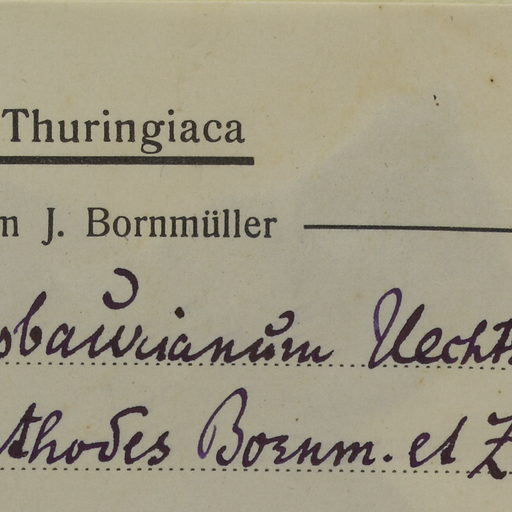 Thuringiaca
m J. Bornmüller
sbaurianum Uechts
thodes Bornm. et Z